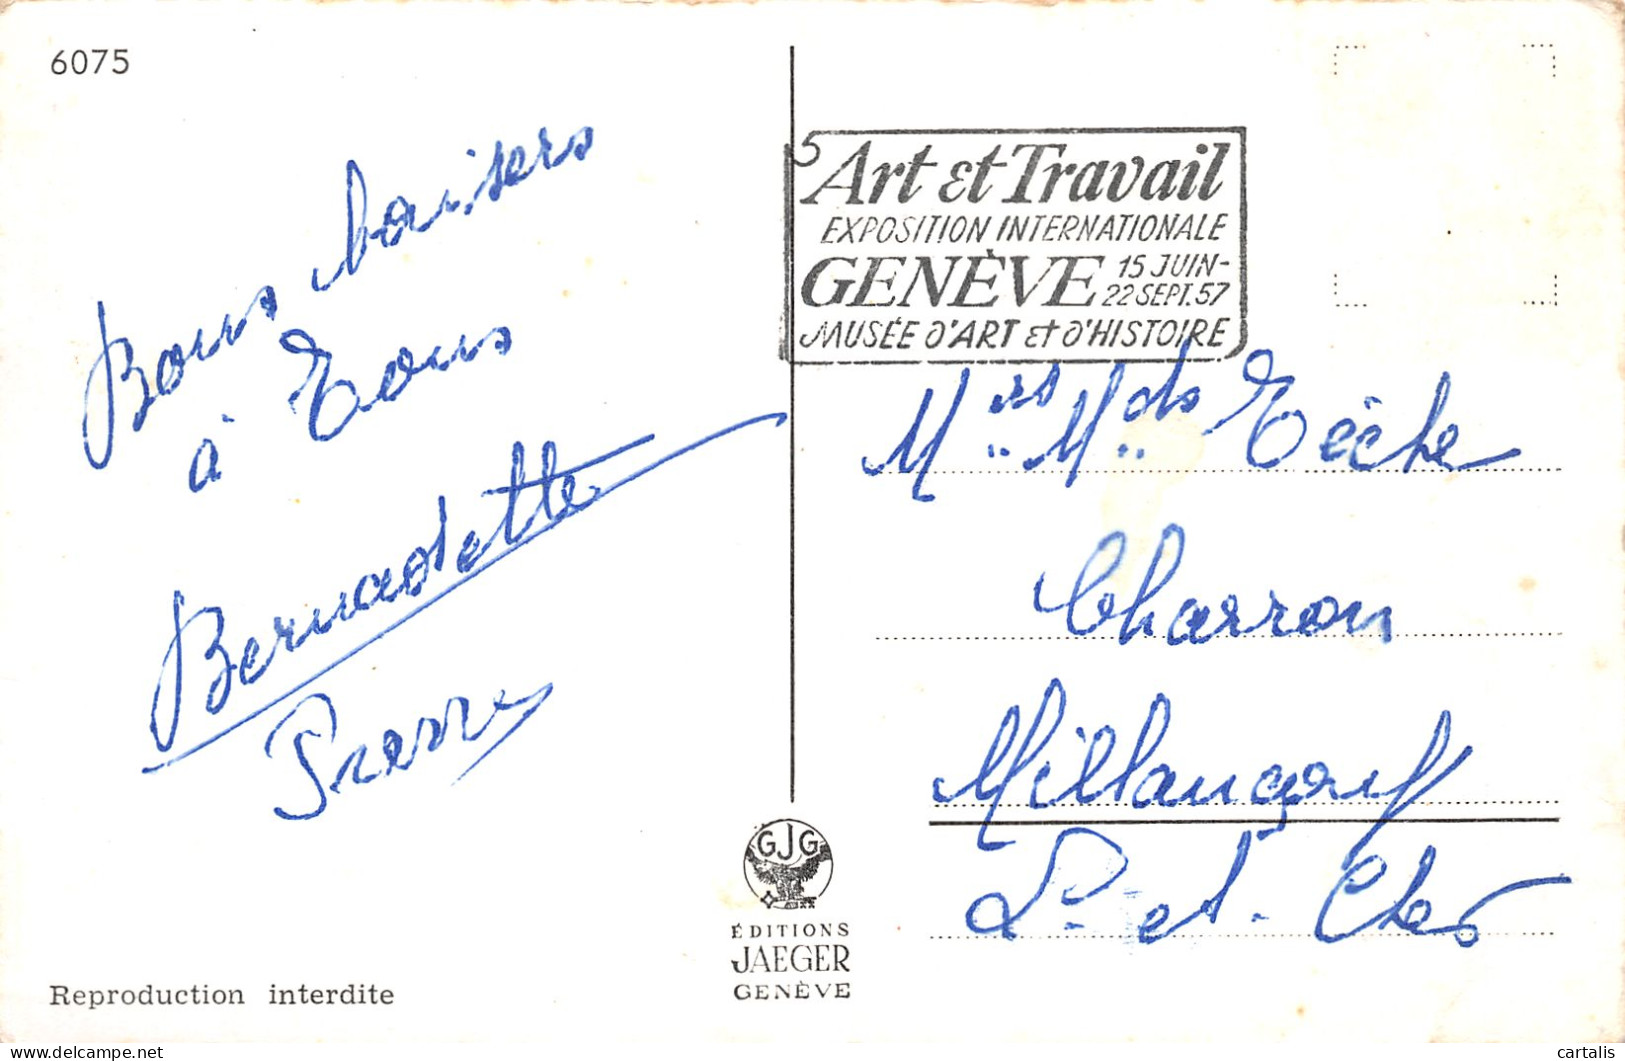 6075
Bons baisers
à Tous
Bernadette
Pierre
5
Art et Travail
EXPOSITION INTERNATIONALE
GENÈVE 15 JUIN-
22 SEPT. 57
MUSÉE D'ART et D'HISTOIRE
Mrs. Mds Tèche
Charron
Millançay
L. et. Cher
GJG
ÉDITIONS
JAEGER
GENÈVE
Reproduction interdite
cartalis